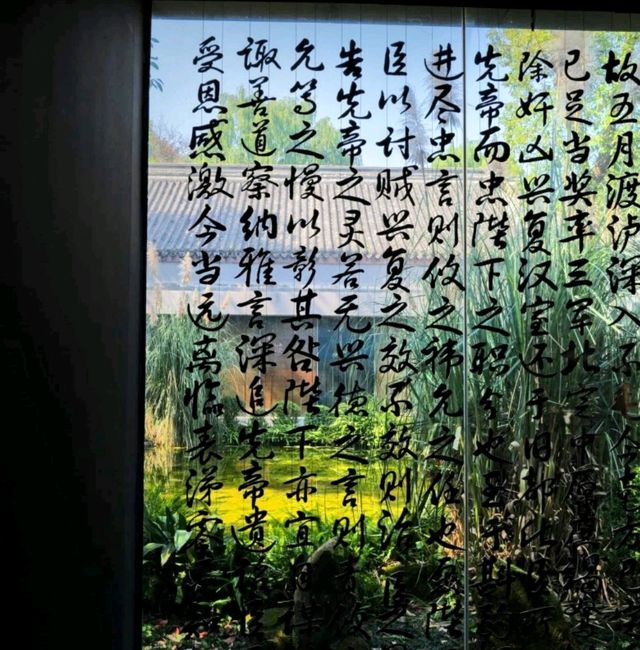 故五月渡泸深入不毛今南方
已足当奖率三军北定中原庶竭驽
除奸凶兴复汉室还于旧都此臣所
先帝而忠陛下之职分也至于斟
进尽忠言则攸之祎允之任也愿陛
臣以讨贼兴复之效不效则治臣之
告先帝之灵若无兴德之言则责攸
允等之慢以彰其咎陛下亦宜自谋
诹善道察纳雅言深追先帝遗诏
受恩感激今当远离临表涕零